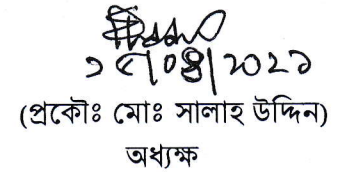 ১৫/০৪/২০২১
(প্রকৌঃ মোঃ সালাহ উদ্দিন)
অধ্যক্ষ